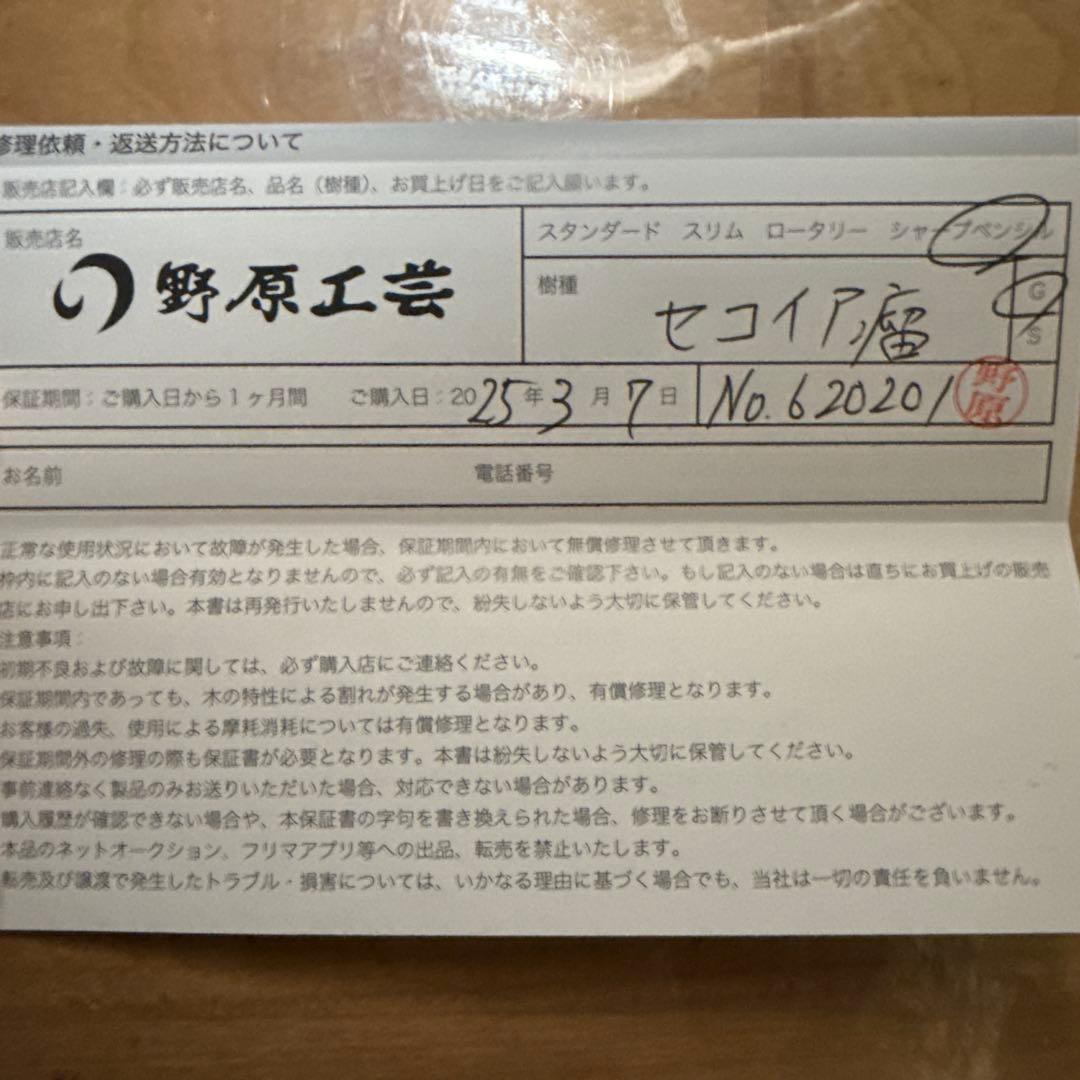 修理依頼・返送方法について
販売店記入欄：必ず販売店名、品名（樹種）、お買上げ日をご記入願います。
販売店名
野原工芸
スタンダード スリム ロータリー シャープペンシル
樹種
セコイア瘤
G
S
保証期間：ご購入日から1ヶ月間 ご購入日：2025年3月7日
No.620201
野原
お名前
電話番号
正常な使用状況において故障が発生した場合、保証期間内において無償修理させて頂きます。
枠内に記入のない場合有効となりませんので、必ず記入の有無をご確認下さい。もし記入のない場合は直ちにお買上げの販売
店にお申し出下さい。本書は再発行いたしませんので、紛失しないよう大切に保管してください。
注意事項：
初期不良および故障に関しては、必ず購入店にご連絡ください。
保証期間内であっても、木の特性による割れが発生する場合があり、有償修理となります。
お客様の過失、使用による摩耗消耗については有償修理となります。
保証期間外の修理の際も保証書が必要となります。本書は紛失しないよう大切に保管してください。
事前連絡なく製品のみお送りいただいた場合、対応できない場合があります。
購入履歴が確認できない場合や、本保証書の字句を書き換えられた場合、修理をお断りさせて頂く場合がございます。
本品のネットオークション、フリマアプリ等への出品、転売を禁止いたします。
転売及び譲渡で発生したトラブル・損害については、いかなる理由に基づく場合でも、当社は一切の責任を負いません。